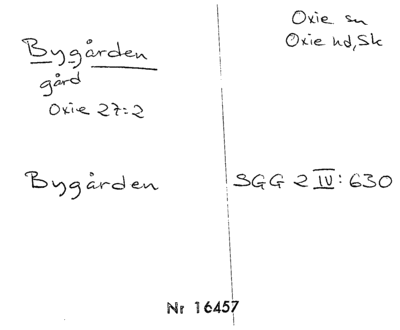 Bygården
gård
Oxie 27:2
Oxie sn
Oxie hd, Sk
Bygården
SGG 2 IV: 630
Nr 16457